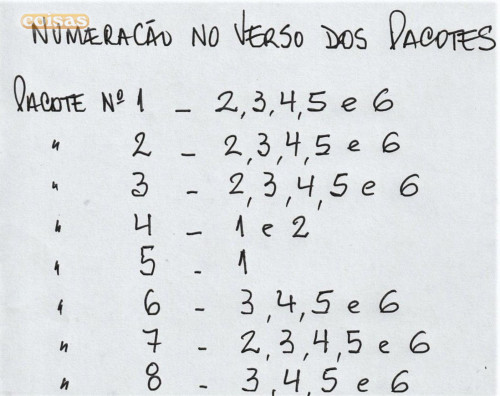 coisas
NUMERACÃO NO VERSO DOS PACOTES
PACOTE Nº 1 - 2,3,4,5 e 6
" 2 - 2,3,4,5 e 6
" 3 - 2,3,4,5 e 6
" 4 - 1 e 2
" 5 - 1
" 6 - 3,4,5 e 6
" 7 - 2,3,4,5 e 6
" 8 - 3,4,5 e 6